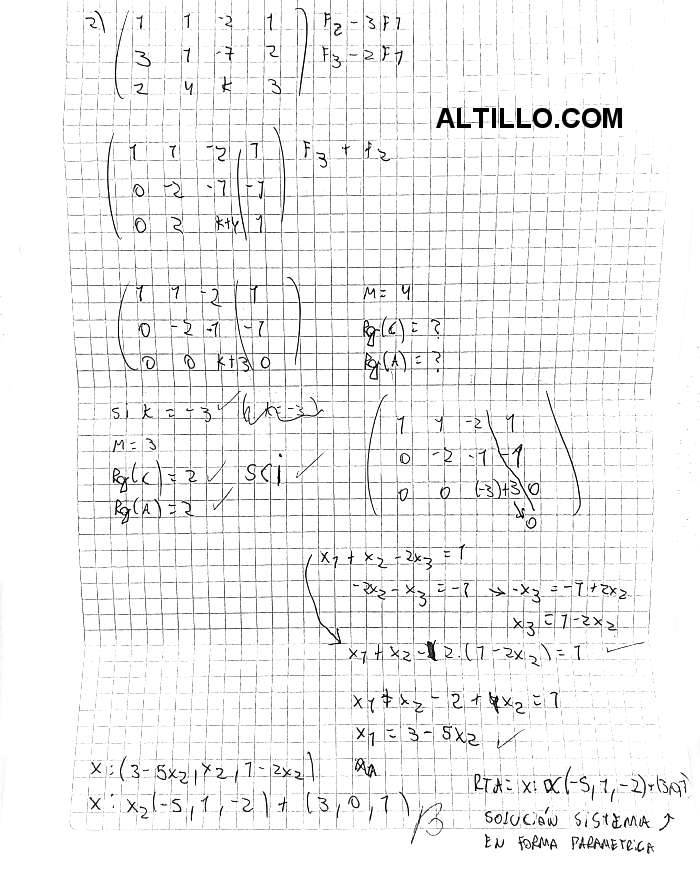 2) ( 1 1 -2 1 ) F2 - 3F1
( 3 1 -7 2 ) F3 - 2F1
( 2 4 k 3 )
ALTILLO.COM
( 1 1 -2 | 1 ) F3 + F2
( 0 -2 -1 | -1 )
( 0 2 k+4 | 1 )
( 1 1 -2 | 1 ) M = 4
( 0 -2 -1 | -1 ) Rg(C) = ?
( 0 0 k+3 | 0 ) Rg(A) = ?
si k = -3 ✓ (k=-3)
M = 3
Rg(C) = 2 ✓ SCI ✓
Rg(A) = 2 ✓
( 1 1 -2 | 1 )
( 0 -2 -1 | -1 )
( 0 0 (-3)+3 | 0 )
0
x1 + x2 - 2x3 = 1
-2x2 - x3 = -1 → -x3 = -1 + 2x2
x3 = 1 - 2x2
x1 + x2 - 2.(1 - 2x2) = 1 ✓
x1 + x2 - 2 + 4x2 = 1
x1 = 3 - 5x2 ✓
x: (3 - 5x2, x2, 1 - 2x2)
x: x2(-5, 1, -2) + (3, 0, 1)
RTA = x: α(-5, 1, -2) + (3,0,1)
SOLUCIÓN SISTEMA ↑
EN FORMA PARAMETRICA